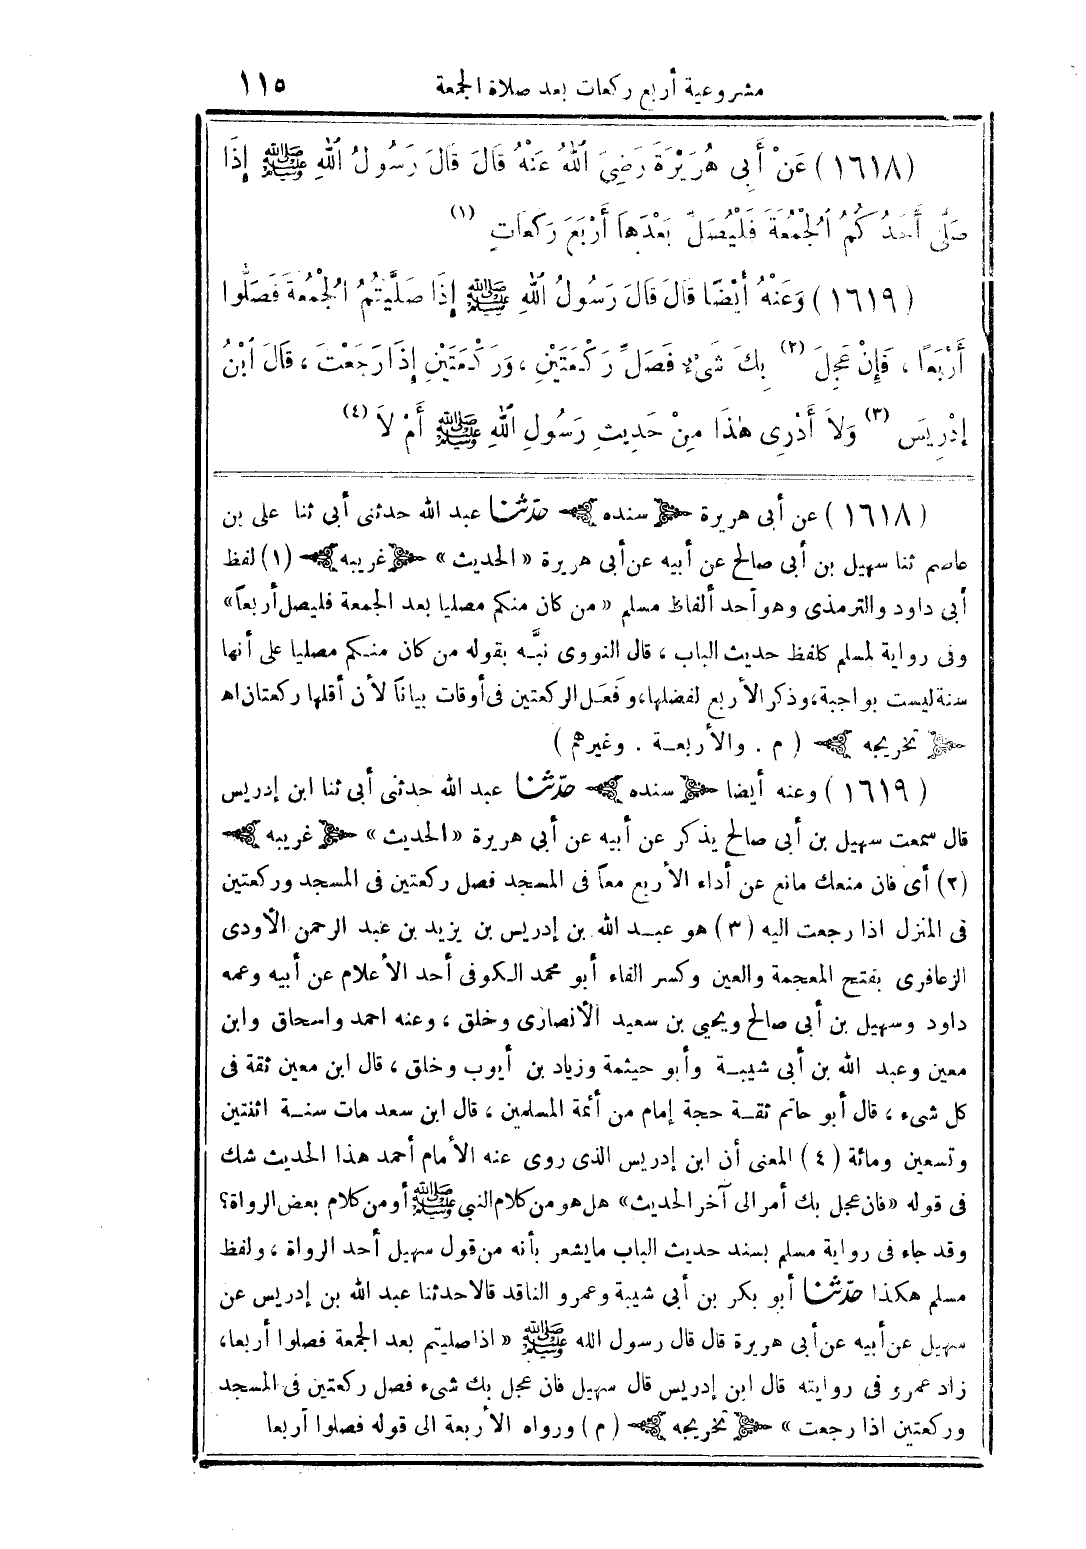 مشروعية أربع ركعات بعد صلاة الجمعة ١١٥
(١٦١٨) عَنْ أَبِى هُرَيْرَةَ رَضِىَ ٱللهُ عَنْهُ قَالَ قَالَ رَسُولُ ٱللهِ ﷺ إِذَا
صَلَّى أَحَدُكُمُ ٱلْجُمُعَةَ فَلْيُصَلِّ بَعْدَهَا أَرْبَعَ رَكَعَاتٍ (١)
(١٦١٩) وَعَنْهُ أَيْضًا قَالَ قَالَ رَسُولُ ٱللهِ ﷺ إِذَا صَلَّيْتُمُ ٱلْجُمُعَةَ فَصَلُّوا
أَرْبَعًا ، فَإِنْ عَجِلَ (٢) بِكَ شَىْءٌ فَصَلِّ رَكْعَتَيْنِ ، وَرَكْعَتَيْنِ إِذَا رَجَعْتَ ، قَالَ ٱبْنُ
إِدْرِيسَ (٣) وَلَا أَدْرِى هٰذَا مِنْ حَدِيثِ رَسُولِ ٱللهِ ﷺ أَمْ لَا (٤)
(١٦١٨) عن أبى هريرة سنده حدّثنا عبد الله حدثنى أبى ثنا على بن
عاصم ثنا سهيل بن أبى صالح عن أبيه عن أبى هريرة « الحديث » غريبه (١) لفظ
أبى داود والترمذى وهو أحد ألفاظ مسلم « من كان منكم مصليا بعد الجمعة فليصل أربعاً »
وفى رواية لمسلم كلفظ حديث الباب ، قال النووى نبَّه بقوله من كان منكم مصليا على أنها
سنة ليست بواجبة، وذكر الأربع لفضلها، وفَعَل الركعتين فى أوقات بياناً لأن أقلها ركعتان اهـ
تخريجه ( م . والأربعة . وغيرهم )
(١٦١٩) وعنه أيضا سنده حدّثنا عبد الله حدثنى أبى ثنا ابن إدريس
قال سمعت سهيل بن أبى صالح يذكر عن أبيه عن أبى هريرة « الحديث » غريبه
(٢) أى فان منعك مانع عن أداء الأربع معاً فى المسجد فصل ركعتين فى المسجد وركعتين
فى المنزل اذا رجعت اليه (٣) هو عبد الله بن إدريس بن يزيد بن عبد الرحمن الأودى
الزعافرى بفتح المعجمة والعين وكسر الفاء أبو محمد الكوفى أحد الأعلام عن أبيه وعمه
داود وسهيل بن أبى صالح ويحيى بن سعيد الأنصارى وخلق ، وعنه احمد واسحاق وابن
معين وعبد الله بن أبى شيبة وأبو حيثمة وزياد بن أيوب وخلق ، قال ابن معين ثقة فى
كل شىء ، قال أبو حاتم ثقة حجة إمام من أئمة المسلمين ، قال ابن سعد مات سنة اثنتين
وتسعين ومائة (٤) المعنى أن ابن إدريس الذى روى عنه الأمام أحمد هذا الحديث شك
فى قوله «فان عجل بك أمر الى آخر الحديث» هل هو من كلام النبي ﷺ أو من كلام بعض الرواة؟
وقد جاء فى رواية مسلم بسند حديث الباب ما يشعر بأنه من قول سهيل أحد الرواة ، ولفظ
مسلم هكذا حدّثنا أبو بكر بن أبى شيبة وعمرو الناقد قالا حدثنا عبد الله بن إدريس عن
سهيل عن أبيه عن أبى هريرة قال قال رسول الله ﷺ « اذا صليتم بعد الجمعة فصلوا أربعا،
زاد عمرو فى روايته قال ابن إدريس قال سهيل فان عجل بك شىء فصل ركعتين فى المسجد
وركعتين اذا رجعت » تخريجه ( م ) ورواه الأربعة الى قوله فصلوا أربعا